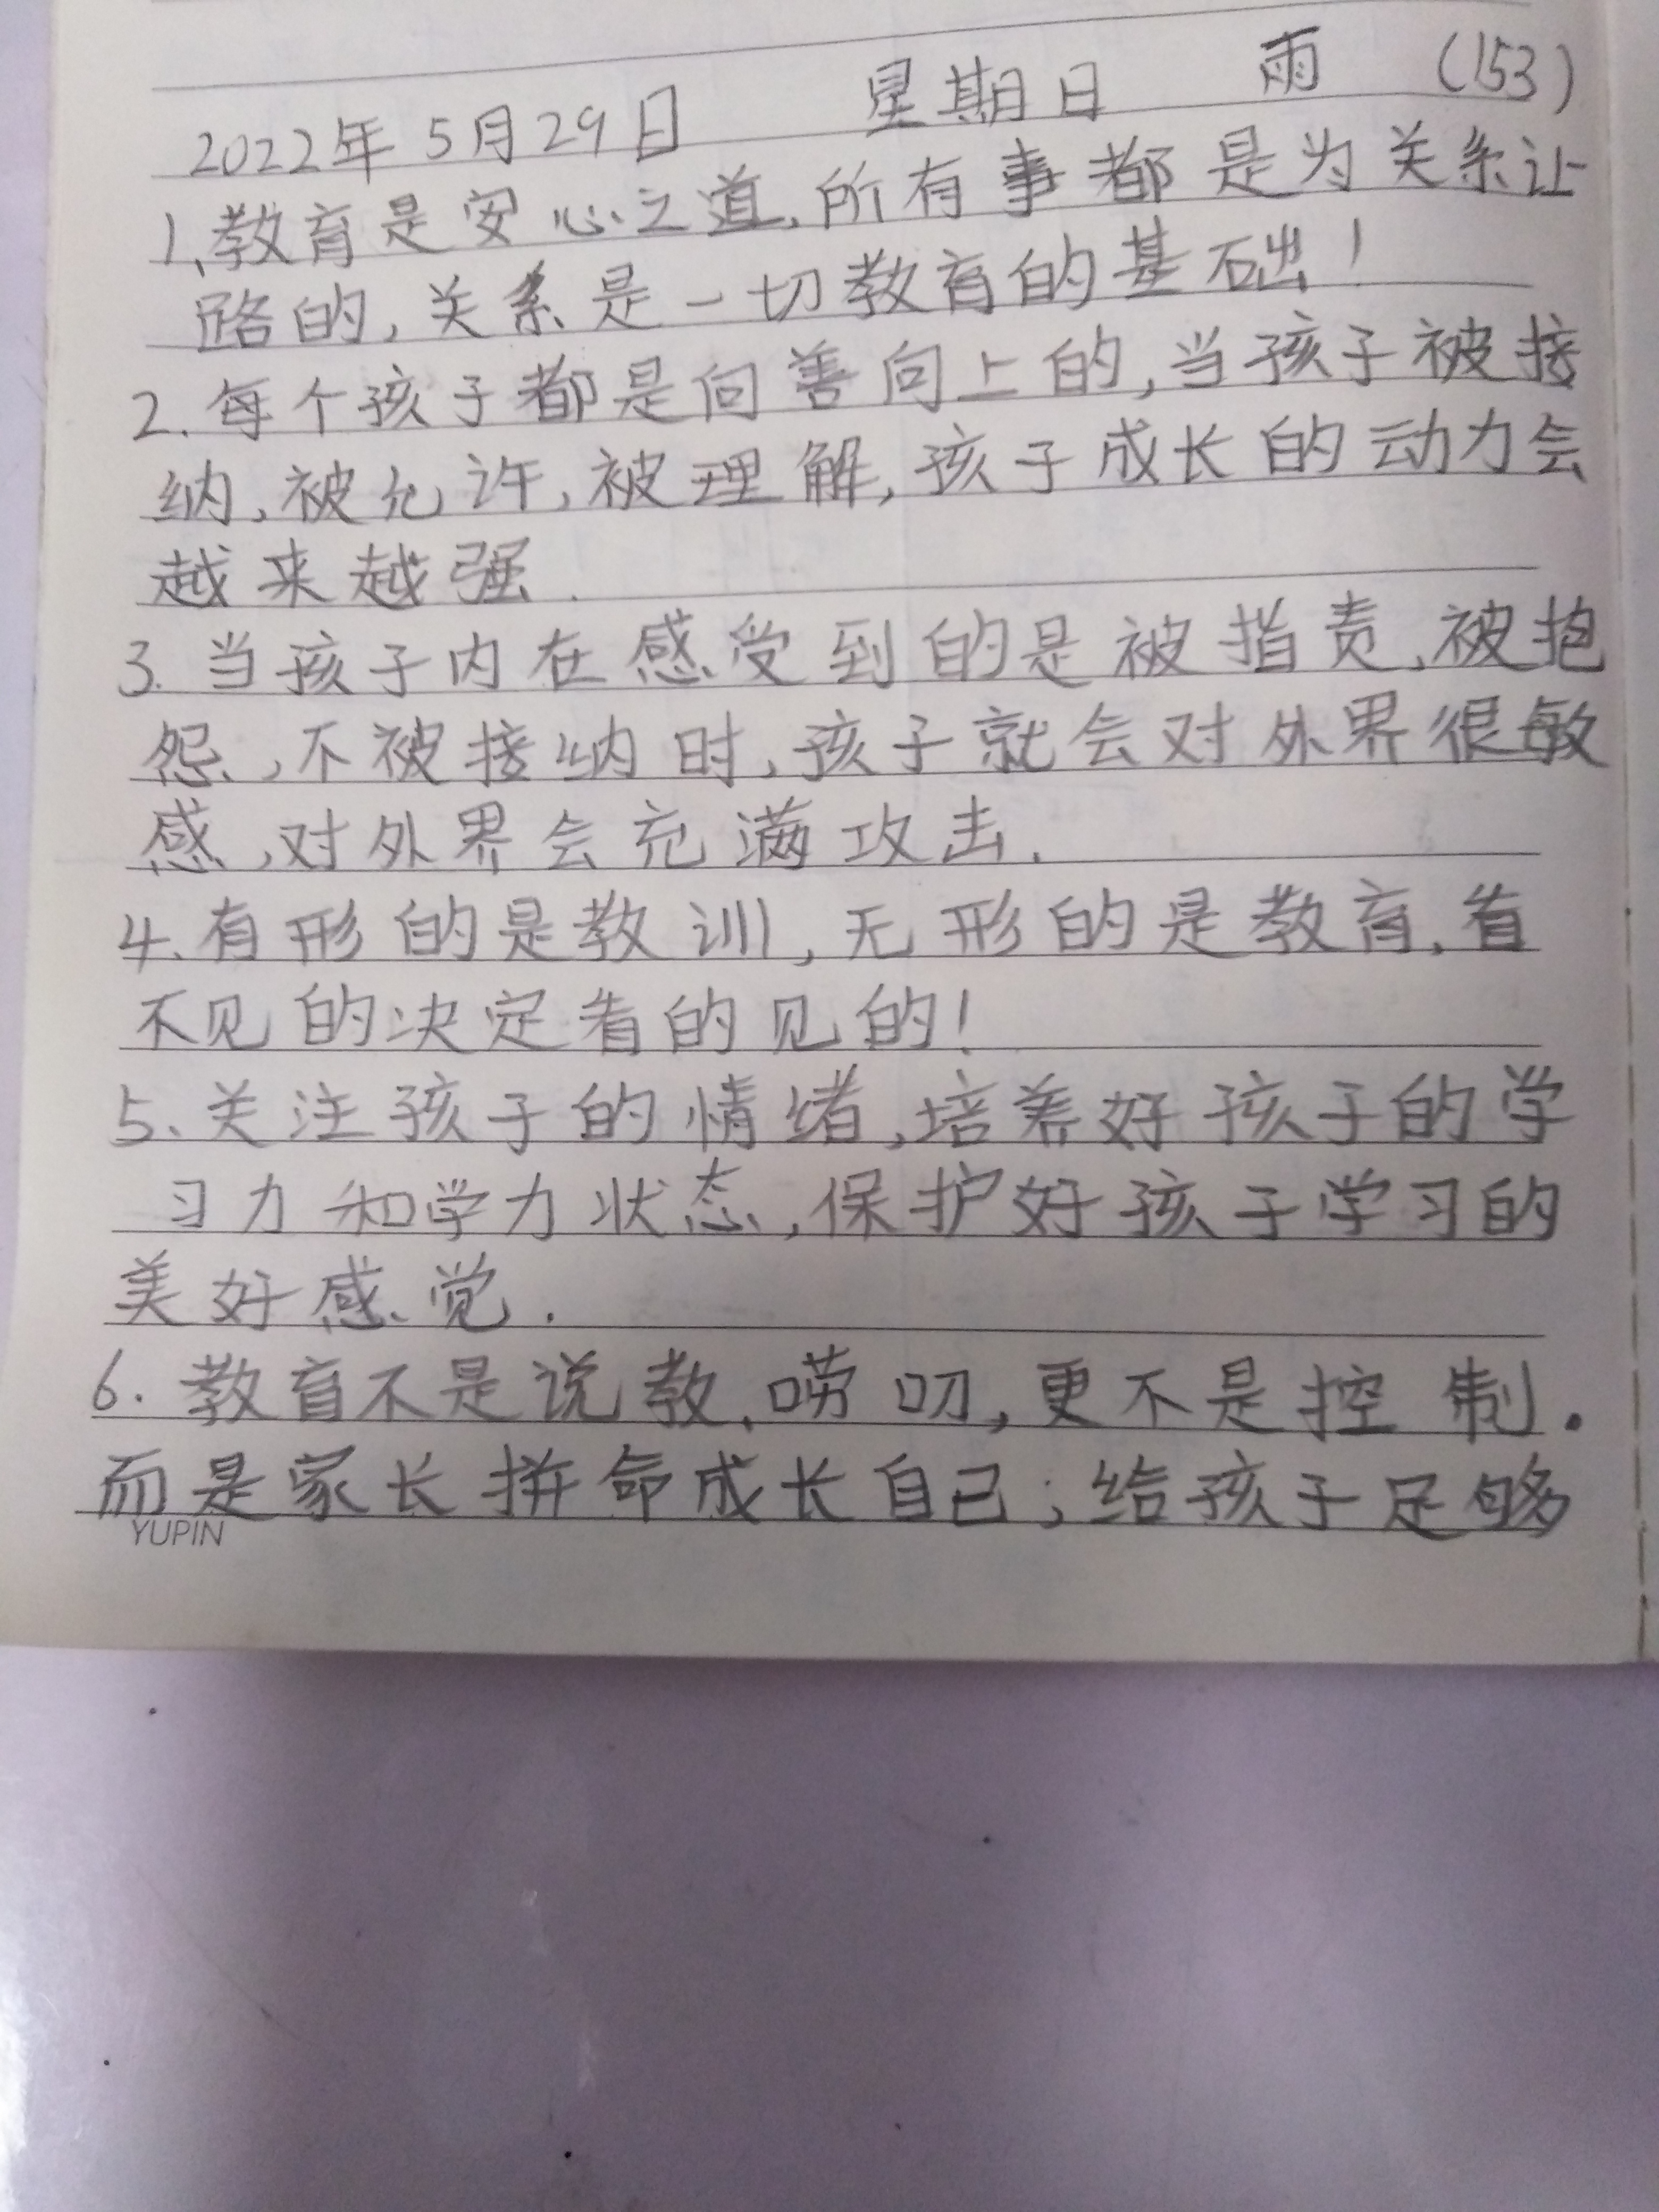 2022年5月29日 星期日 雨 (153)
1、教育是安心之道,所有事都是为关系让
路的,关系是一切教育的基础!
2.每个孩子都是向善向上的,当孩子被接
纳,被允许,被理解,孩子成长的动力会
越来越强.
3.当孩子内在感受到的是被指责,被抱
怨,不被接纳时,孩子就会对外界很敏
感,对外界会充满攻击.
4.有形的是教训,无形的是教育,看
不见的决定看的见的!
5、关注孩子的情绪,培养好孩子的学
习力和学力状态,保护好孩子学习的
美好感觉.
6.教育不是说教,唠叨,更不是控制.
而是家长拼命成长自己;给孩子足够
YUPIN